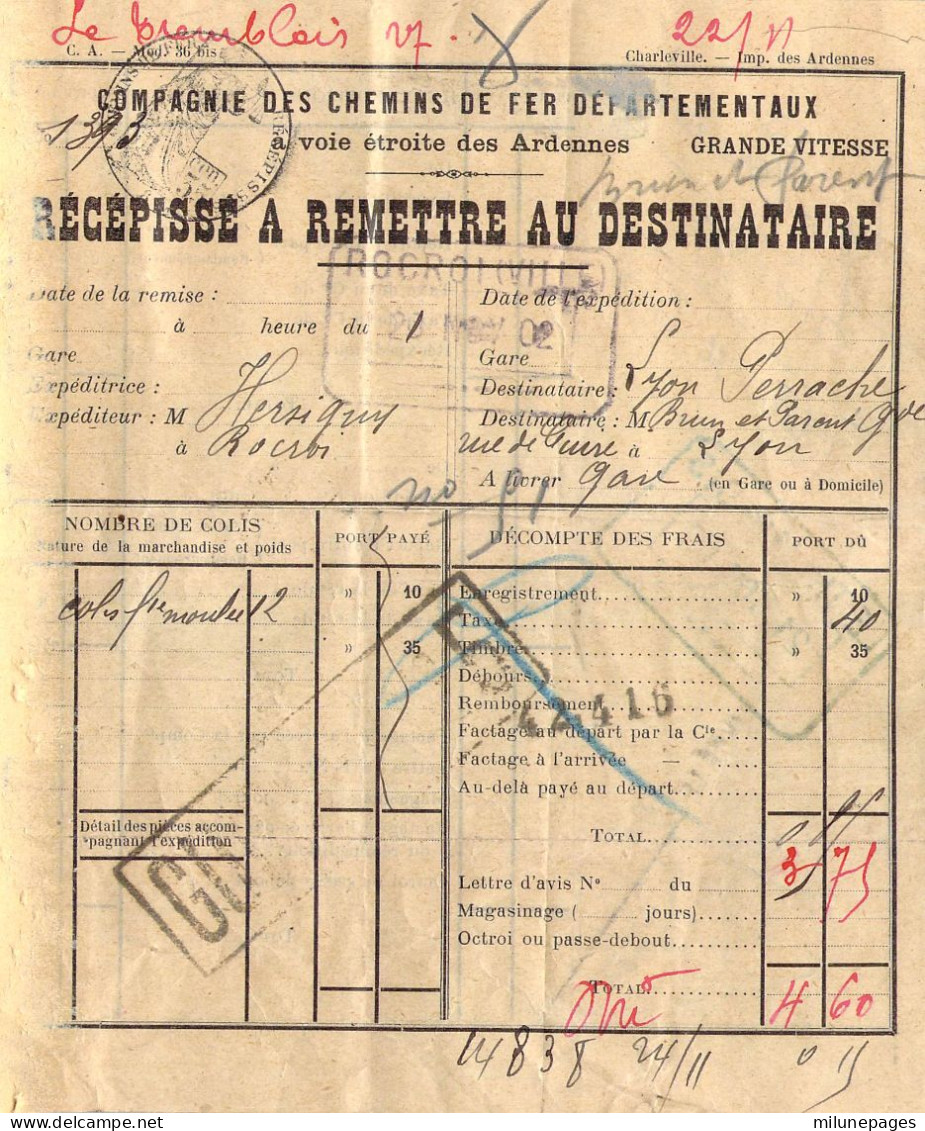 Le Tremblois 27. 22/11
C. A. — Mod. 36 bis Charleville. — Imp. des Ardennes
COMPAGNIE DES CHEMINS DE FER DÉPARTEMENTAUX
1393 à voie étroite des Ardennes GRANDE VITESSE
Brun et Parent
RÉCÉPISSÉ A REMETTRE AU DESTINATAIRE
ROCROI (VILLE)
Date de la remise : Date de l'expédition :
à heure du
02
Gare Gare
Expéditrice : Destinataire : Lyon Perrache
Expéditeur : M Hersigny Destinataire : M Brun et Parent
à Rocroi rue de à Lyon
A livrer gare (en Gare ou à Domicile)
NOMBRE DE COLIS PORT PAYÉ DÉCOMPTE DES FRAIS PORT DÛ
Nature de la marchandise et poids
» 10 Enregistrement » 10
colis 12 Taxe 40
» 35 Timbre » 35
Débours
Remboursement
42416
Factage au départ par la Cie
Factage à l'arrivée —
Au-delà payé au départ
Détail des pièces accom-
pagnant l'expédition
TOTAL 0 85
3 75
Lettre d'avis N° du
Magasinage ( jours)
Octroi ou passe-debout
TOTAL 4 60
14838 24/11 0 15
milunepages